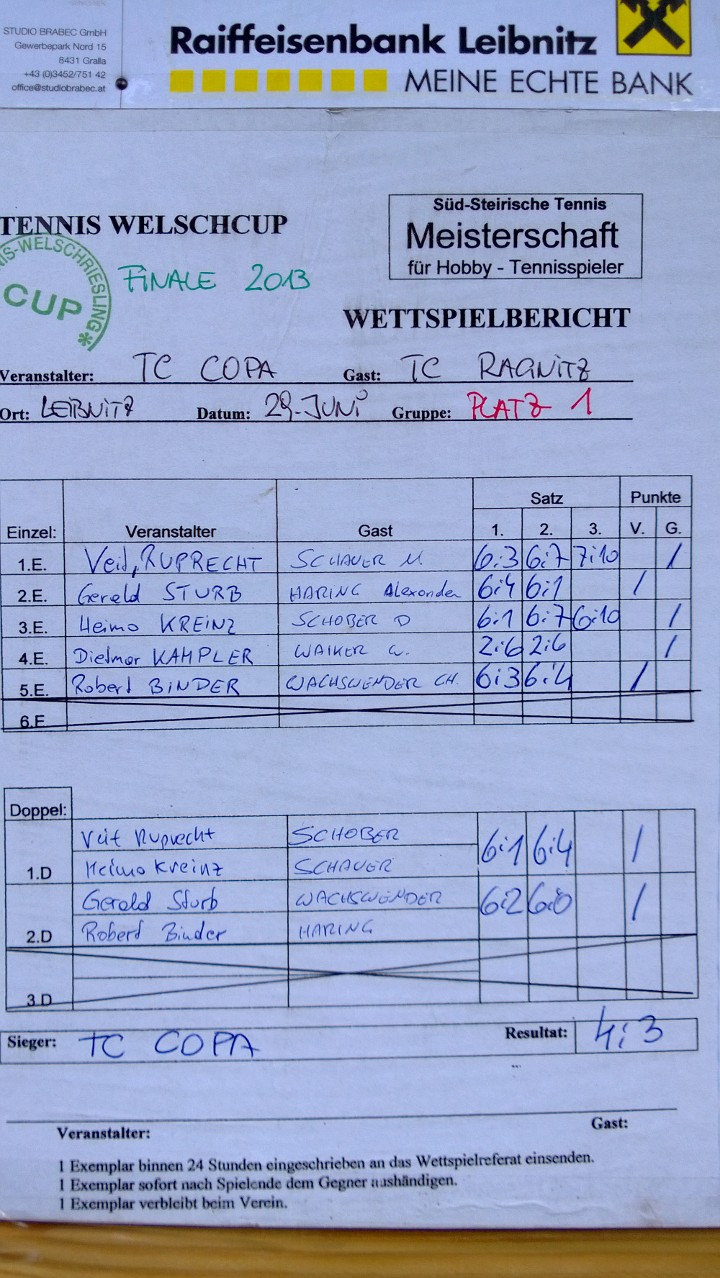 STUDIO BRABEC GmbH
Gewerbepark Nord 15
8431 Gralla
+43 (0)3452/751 42
office@studiobrabec.at
Raiffeisenbank Leibnitz
MEINE ECHTE BANK
TENNIS WELSCHCUP
Süd-Steirische Tennis
Meisterschaft
für Hobby - Tennisspieler
NIS-WELSCHRIESLING*
CUP
FINALE 2013
WETTSPIELBERICHT
Veranstalter: TC COPA Gast: TC RAGNITZ
Ort: LEIBNITZ Datum: 29. JUNI Gruppe: PLATZ 1
Satz Punkte
Einzel: Veranstalter Gast 1. 2. 3. V. G.
1.E. Veit, RUPRECHT SCHAUER M. 6:3 6:7 7:10 /
2.E. Gerald STURB HARING Alexander 6:4 6:1 /
3.E. Heimo KREINZ SCHOBER D 6:1 6:7 6:10 /
4.E. Dietmar KAMPLER WALKER W. 2:6 2:6 /
5.E. Robert BINDER WACHSWENDER CH. 6:3 6:4 /
6.E
Doppel:
Veit Ruprecht SCHOBER 6:1 6:4 /
1.D Heimo Kreinz SCHAUER
Gerald Sturb WACHSWENDER 6:2 6:0 /
2.D Robert Binder HARING
3.D
Sieger: TC COPA Resultat: 4:3
Veranstalter: Gast:
1 Exemplar binnen 24 Stunden eingeschrieben an das Wettspielreferat einsenden.
1 Exemplar sofort nach Spielende dem Gegner aushändigen.
1 Exemplar verbleibt beim Verein.